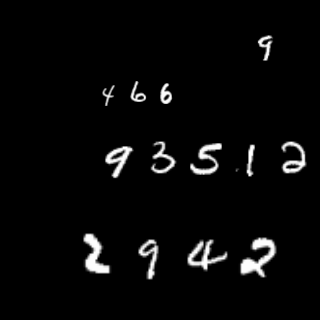 9
4 6 6
9 3 5 1 2
2 9 4 2